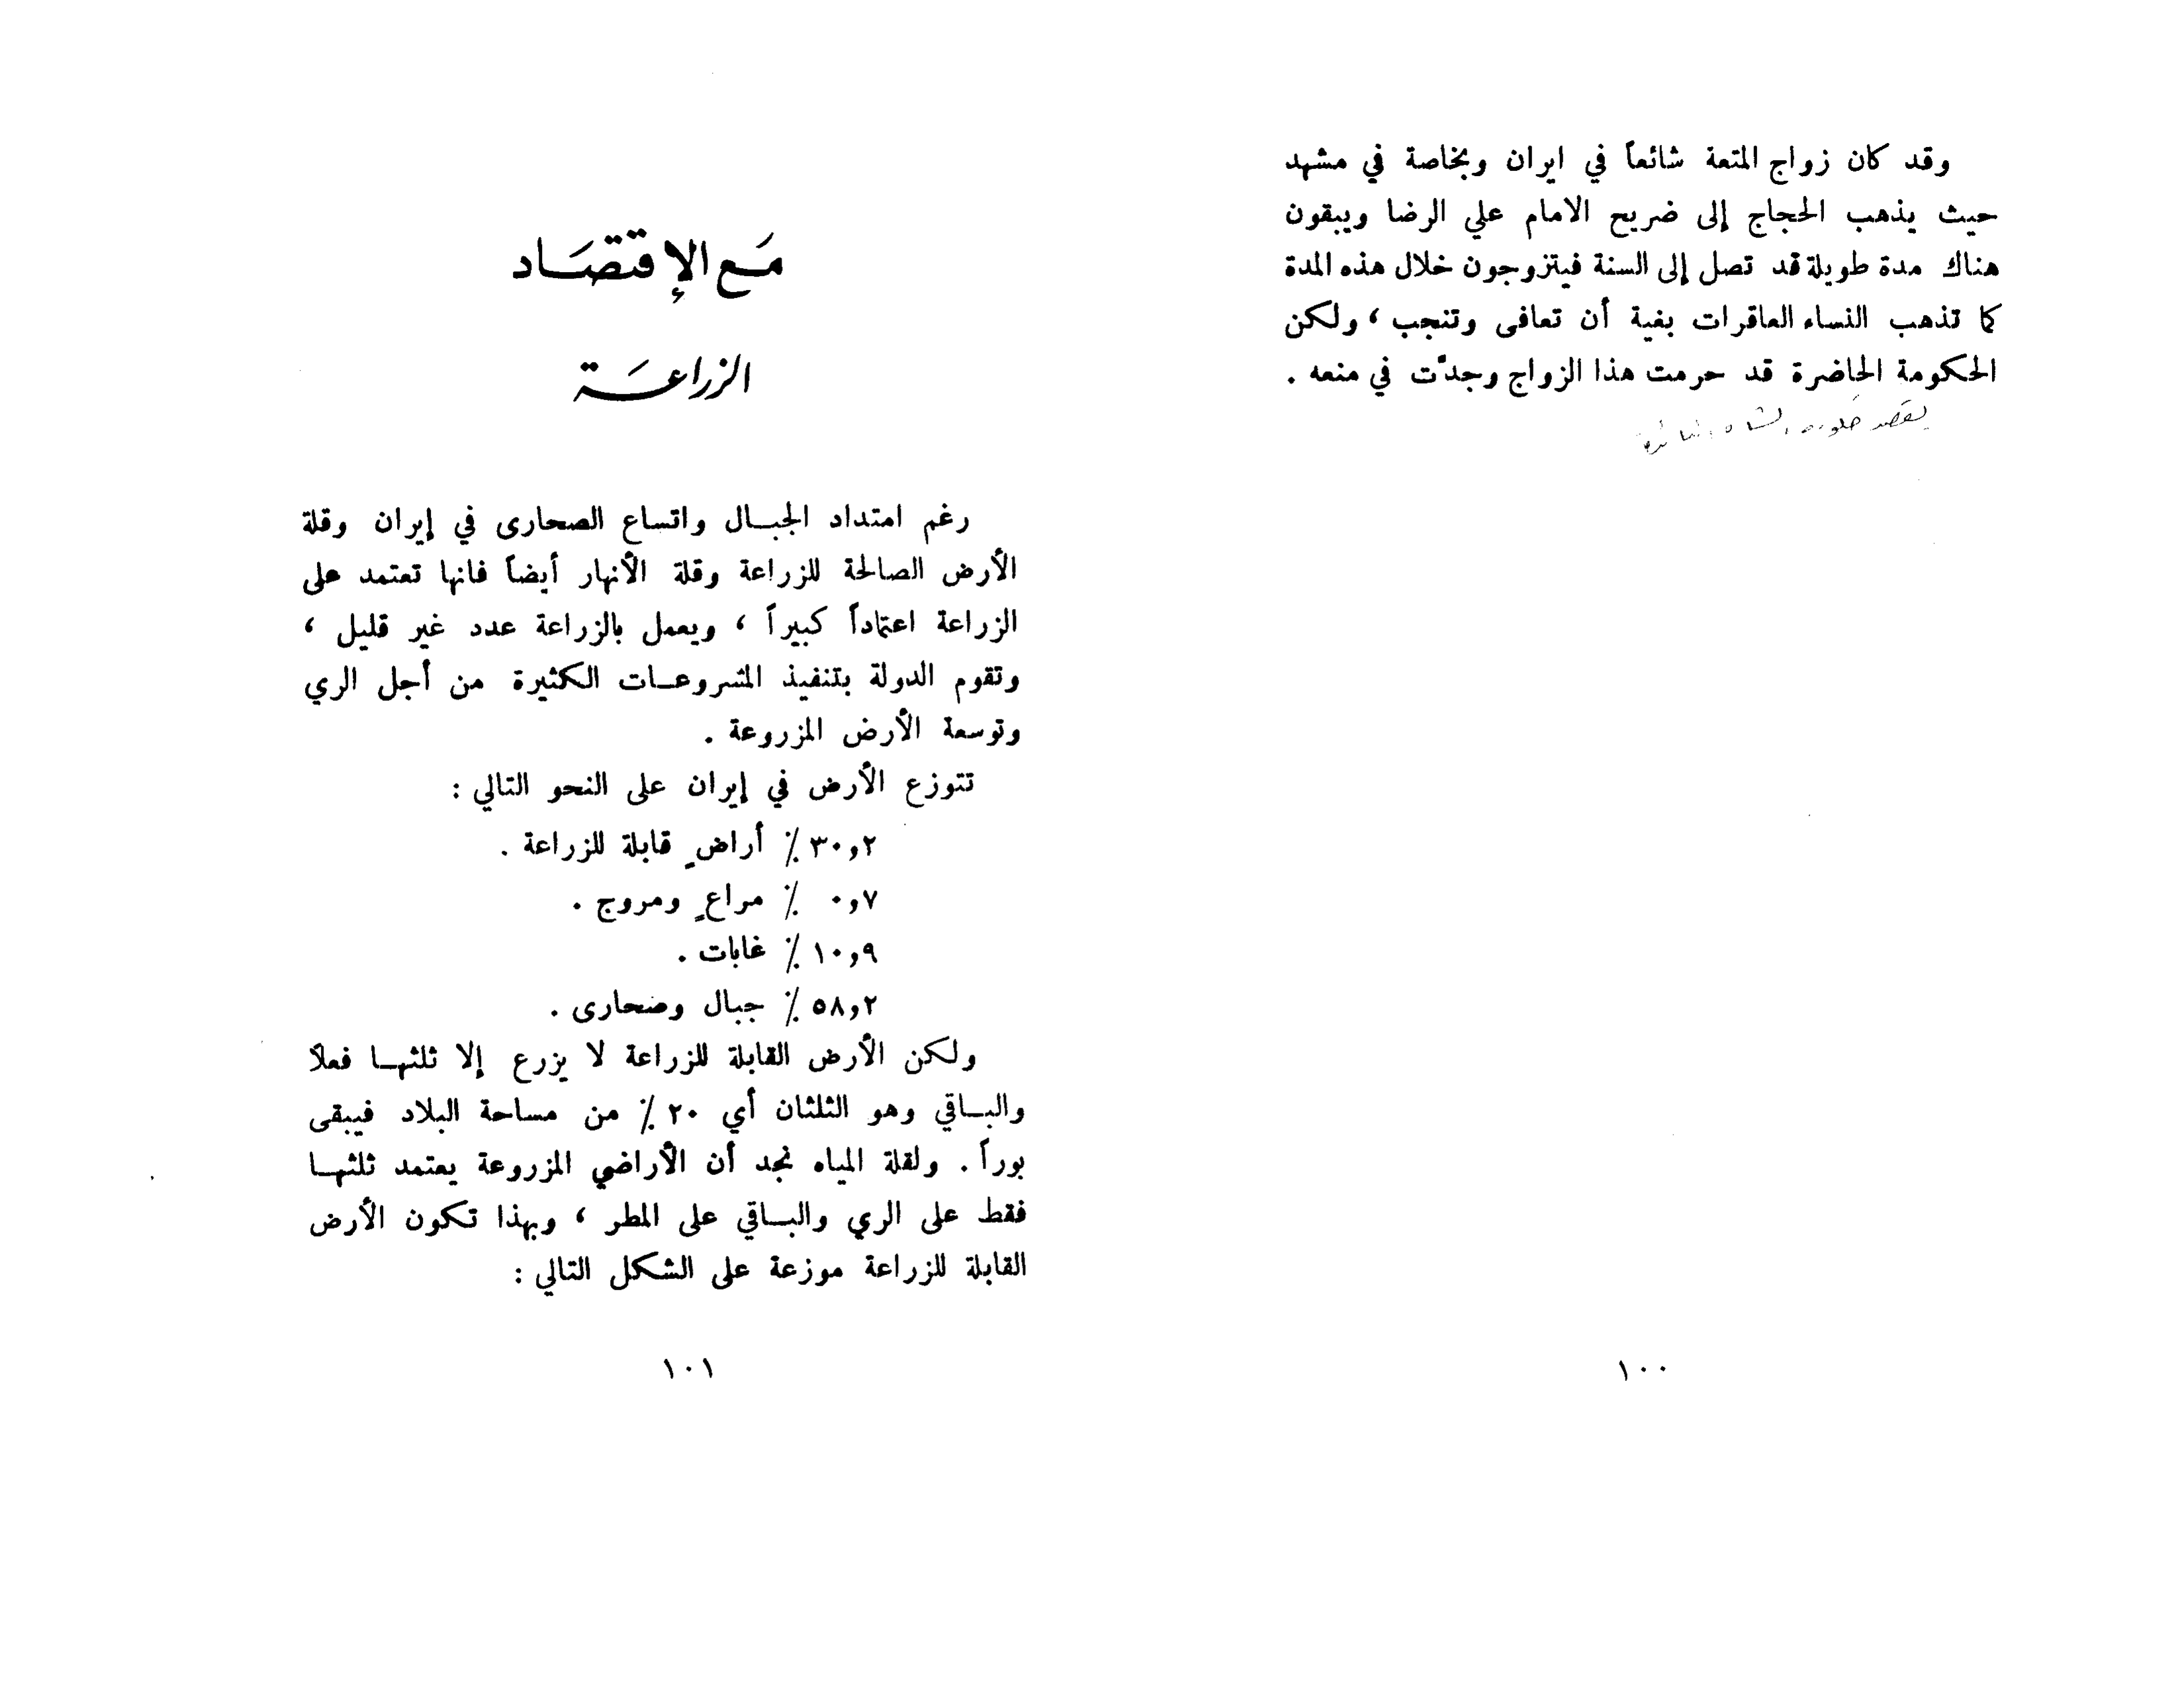 وقد كان زواج المتعة شائعاً في ايران وبخاصة في مشهد
حيث يذهب الحجاج إلى ضريح الامام علي الرضا ويبقون
هناك مدة طويلة قد تصل إلى السنة فيتزوجون خلال هذه المدة
كما تذهب النساء العاقرات بغية أن تعافى وتنجب ، ولكن
الحكومة الحاضرة قد حرمت هذا الزواج وجدّت في منعه .
يقصد الشاه
١٠٠
مَع الإقتصَاد
الزراعَة
رغم امتداد الجبال واتساع الصحارى في إيران وقلة
الأرض الصالحة للزراعة وقلة الأنهار أيضاً فانها تعتمد على
الزراعة اعتماداً كبيراً ، ويعمل بالزراعة عدد غير قليل ،
وتقوم الدولة بتنفيذ المشروعات الكثيرة من أجل الري
وتوسعة الأرض المزروعة .
تتوزع الأرض في إيران على النحو التالي :
٣٠,٢ ٪ أراضٍ قابلة للزراعة .
٠,٧ ٪ مراعٍ ومروج .
١٠,٩ ٪ غابات .
٥٨,٢ ٪ جبال وصحارى .
ولكن الأرض القابلة للزراعة لا يزرع إلا ثلثها فعلاً
والباقي وهو الثلثان أي ٢٠ ٪ من مساحة البلاد فيبقى
بوراً . ولقلة المياه نجد أن الأراضي المزروعة يعتمد ثلثها
فقط على الري والباقي على المطر ، وبهذا تكون الأرض
القابلة للزراعة موزعة على الشكل التالي :
١٠١